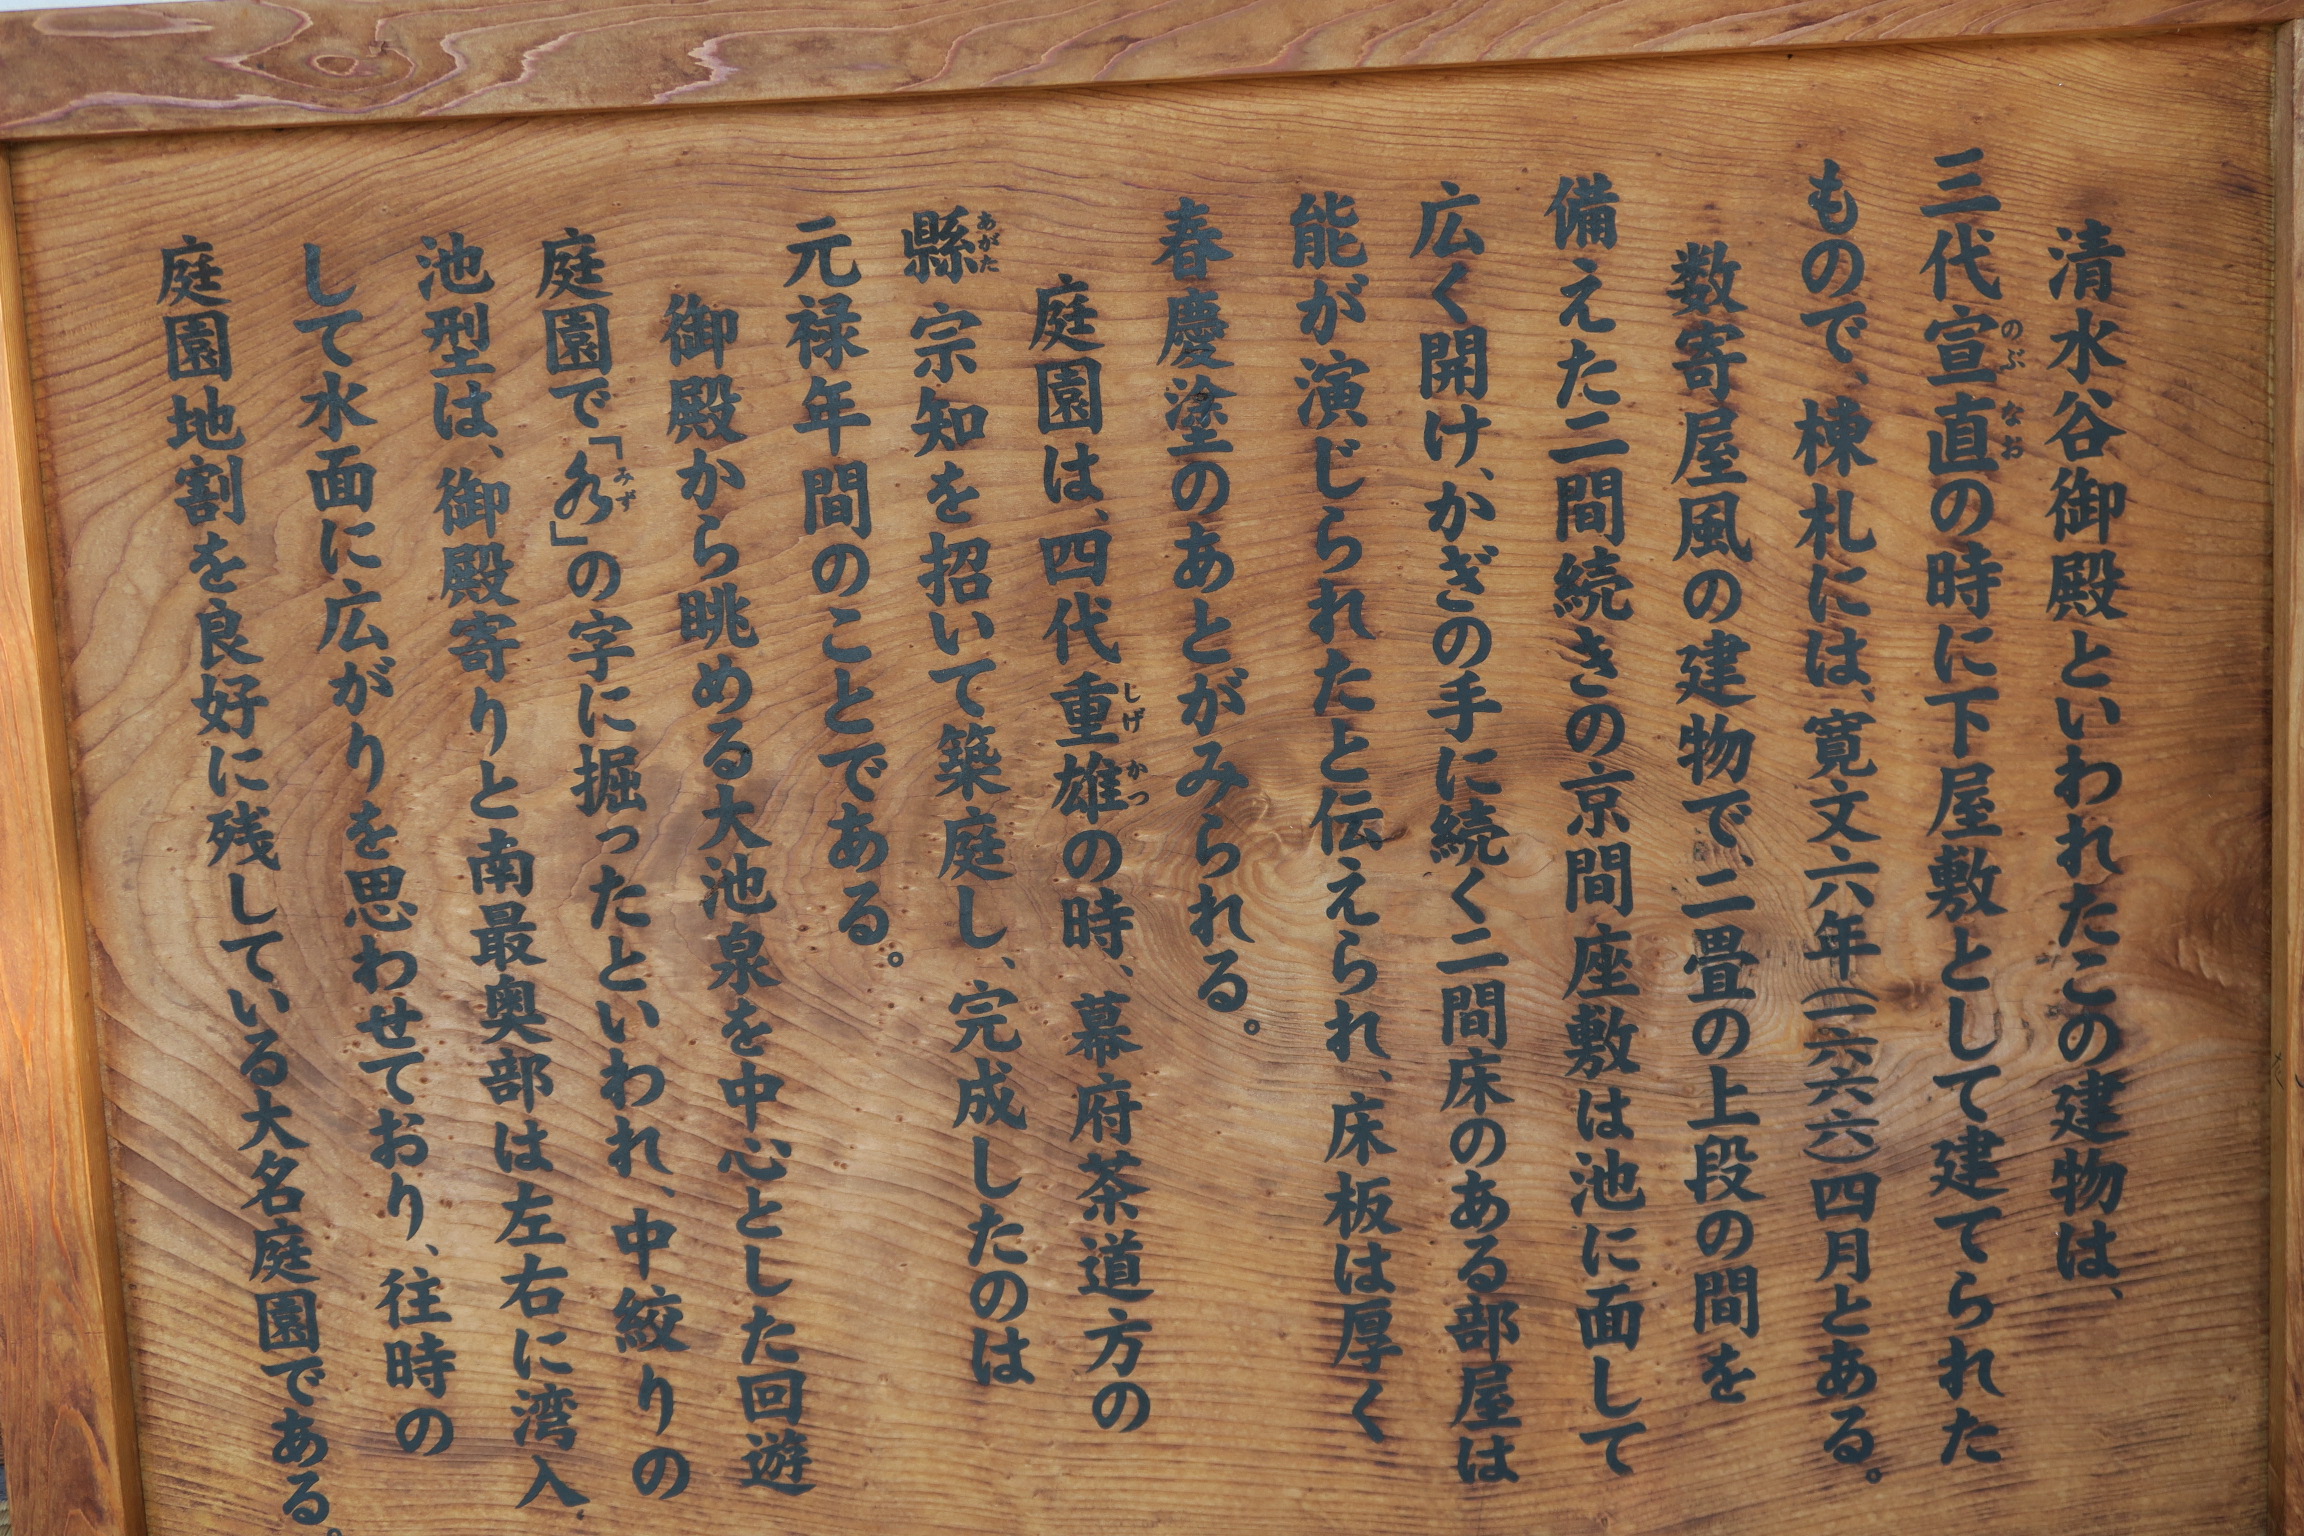 清水谷御殿といわれたこの建物は、
三代宣直の時に下屋敷として建てられた
のぶ なお
もので、棟札には、寛文六年(一六六六)四月とある。
数寄屋風の建物で、二畳の上段の間を
備えた二間続きの京間座敷は池に面して
広く開け、かぎの手に続く二間床のある部屋は
能が演じられたと伝えられ、床板は厚く
春慶塗のあとがみられる。
庭園は、四代重雄の時、幕府茶道方の
しげ かつ
縣宗知を招いて築庭し、完成したのは
あがた
元禄年間のことである。
御殿から眺める大池泉を中心とした回遊
庭園で「水」の字に掘ったといわれ、中絞りの
みず
池型は、御殿寄りと南最奥部は左右に湾入
して水面に広がりを思わせており、往時の
庭園地割を良好に残している大名庭園である。